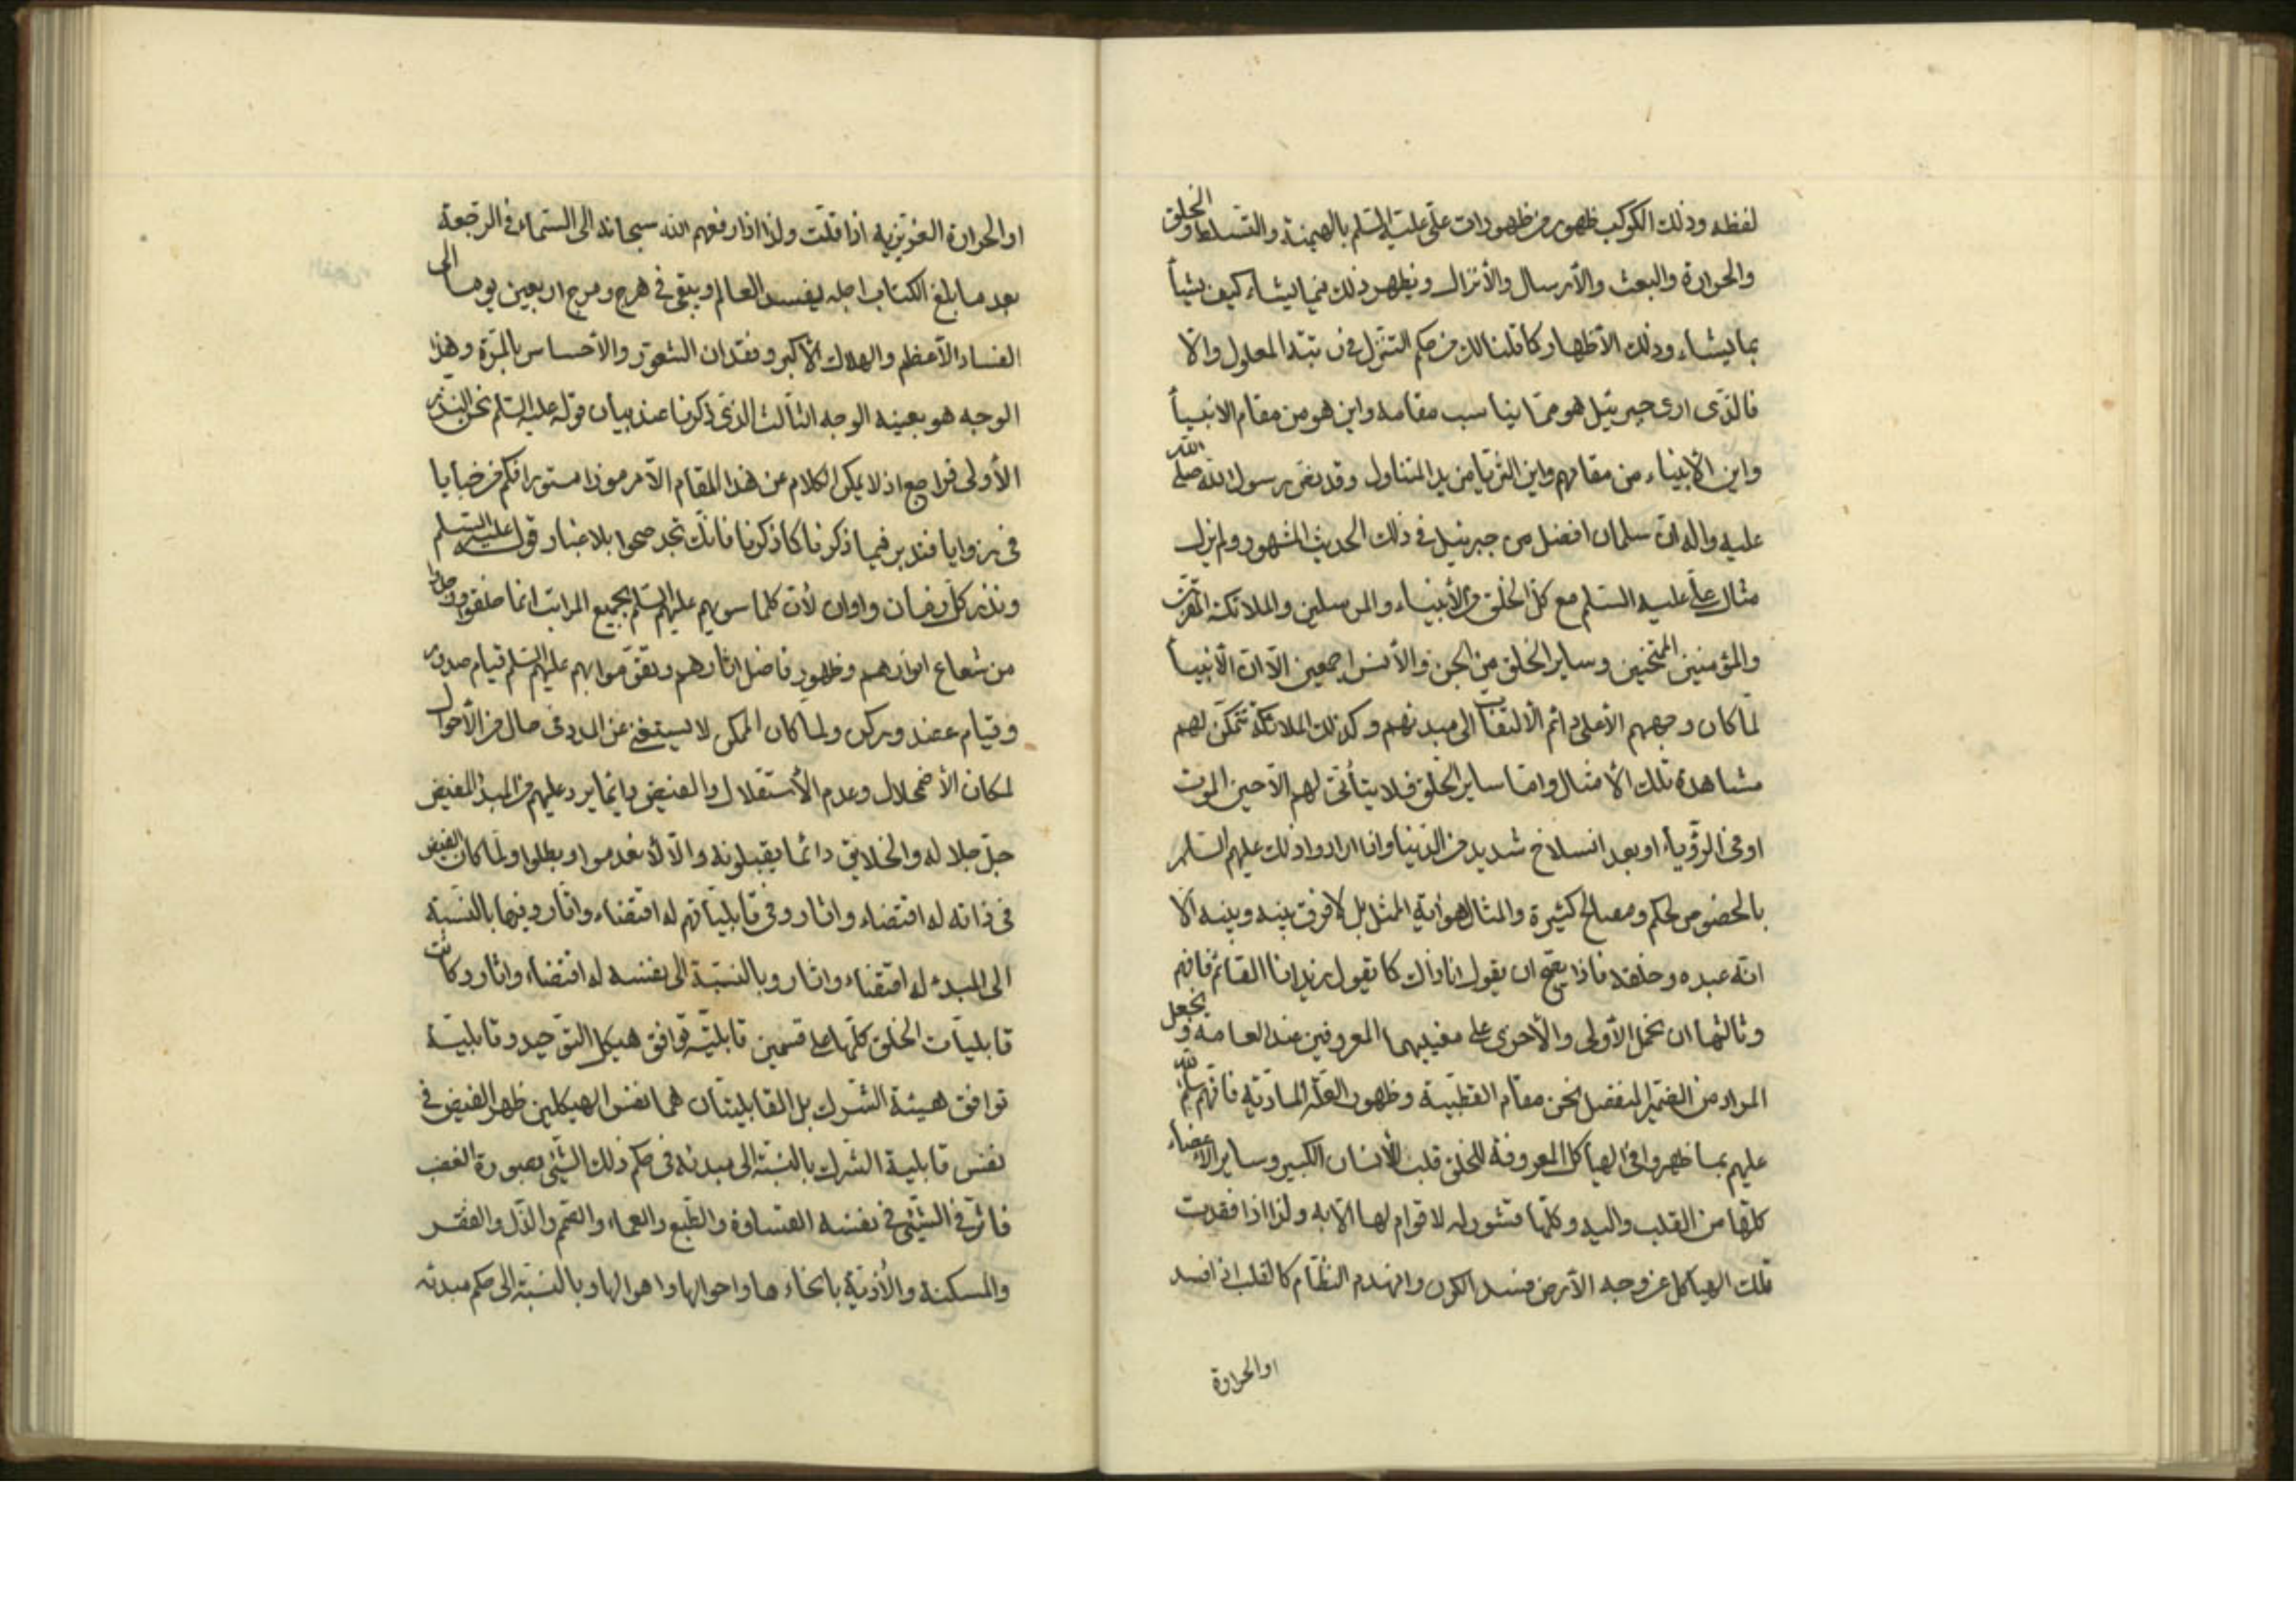 لفظه وذلك الكوكب ظهور من ظهورات علي عليه السلم بالهيمنة والتسلط والخلق
والحرارة والبعث والأرسال والأنزال ويظهر ذلك فيما يشاء كيف يشأ
بما يشاء وذلك الأظهار كما قلنا لك من حكم التنزل في رتبة المعلول والا
فالذي ارى جبرئيل هو مما يناسب مقامه واين هو من مقام الانبيأ
واين الأنبياء من مقامهم واين الثريا من يد المتناول وقد نص رسول الله صلى الله
عليه واله ان سلمان افضل من جبرئيل في ذلك الحديث المشهور ولم يزل
مثال علي عليه السلم مع كل الخلق من الأنبياء والمرسلين والملائكة المقربين
والمؤمنين الممتحنين وساير الخلق من الجن والأنس اجمعين الا ان الأنبيأ
لما كان وجههم الأعلى دائم الألتفات الى مبدئهم وكذلك الملائكة تتمكن لهم
مشاهدة تلك الأمثال واما ساير الخلق فلا يتأتى لهم الا حين الموت
او في الرؤياء او بعد انسلاخ شديد من الدنيا واذا ارادوا ذلك عليهم السلم
بالخصوص لحكم ومصالح كثيرة والمثال هو اية الممثل بل لا فرق بينه وبينه الا
انه عبده وخلقه فاذا يصح ان يقول انا ذاك كما يقول زيد انا القائم فافهم
وثالثها ان نحمل الأولى والأخرى على معنييهما المعروفين عند العامة ونجعل
المراد من الضمير المنفصل نحن مقام القطبية وظهور العلة المادية فانهم سلم الله
عليهم بما ظهروا في الهياكل المعروفة للخلق قلب الأنسان الكبير وساير الأعضاء
كلها من القلب واليه وكلها متشور له لا قوام لها الا به ولذا اذا فقدت
تلك الهياكل عن وجه الأرض فسد الكون وانهدم النظام كالقلب اذا فسد
او الحرارة
او الحرارة الغريزية اذا قلت ولذا اذا رفعهم الله سبحانه الى السماء في الرجعة
بعد ما بلغ الكتاب اجله يفسد العالم ويبقى في هرج ومرج اربعين يوما الى
الفساد الأعظم والهلاك الأكبر وفقدان الشعور والأحساس بالمرة وهذا
الوجه هو بعينه الوجه الثالث الذي ذكرنا عند بيان قوله عليه السلم نحن النذر
الأولى فراجع اذ لا يمكن الكلام عن هذا المقام الا مرموزا مستورا فكم من خبايا
في زوايا فتدبر فيما ذكرنا كما ذكرنا فانك تجد صحوا بلا غبار قوله عليه السلم
ونذر كل زمان واوان لأن كلما سويهم عليهم السلم بجميع المراتب انما خلقوا
من شعاع انوارهم وظهور فاضل اثارهم وتقوموا بهم عليهم السلم قيام صدور
وقيام عضد وركن ولما كان الممكن لا يستغني عن المدد في حال من الأحوال
لمكان الأضمحلال وعدم الأستقلال والفيض دائما يرد عليهم من المبدأ المفيض
جل جلاله والخلايق دائما يقبلونه والا لأنعدموا وبطلوا ولما كان الفيض
في ذاته له اقتضاء واثار وفي قابلياتهم له اقتضاء واثار وفيها بالنسبة
الى المبدء له اقتضاء واثار وبالنسبة الى نفسه له اقتضاء واثار وكانت
قابليات الخلق كلها على قسمين قابلية توافق هيكل التوحيد وقابلية
توافق هيئة الشرك بل القابليتان هما نفس الهيكلين ظهر الفيض في
نفس قابلية الشرك بالنسبة الى مبدئه في حكم ذلك الشيء بصورة الغضب
فاثر في الشيء في نفسه القساوة والطبع والعماء والصم والذل والفقر
والمسكنة والأذية بانحاءها واحوالها واهوالها وبالنسبة الى حكم مبدئه